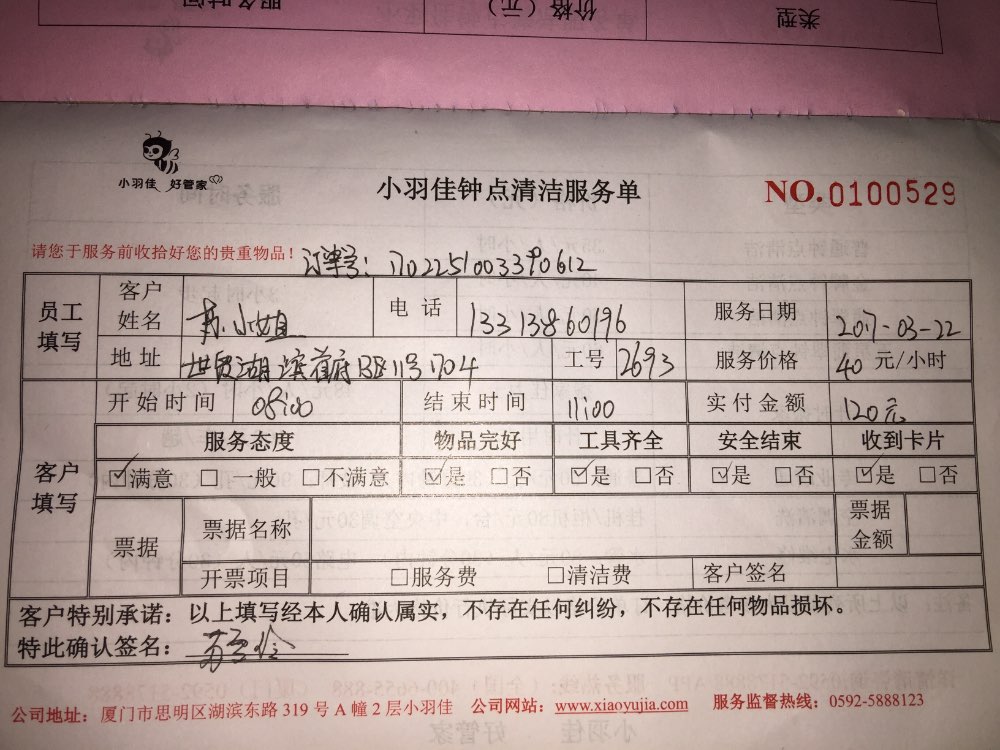 服务时间 价格（元） 类型
小羽佳 好管家
小羽佳钟点清洁服务单
NO.0100529
请您于服务前收拾好您的贵重物品！
订单号：170225100339 0612
员工填写
客户姓名 苏小姐 电话 13313860196 服务日期 2017-03-22
地址 世贸湖滨首府 113号1704 工号 2693 服务价格 40 元/小时
客户填写
开始时间 08:00 结束时间 11:00 实付金额 120元
服务态度 物品完好 工具齐全 安全结束 收到卡片
☑满意 □一般 □不满意 ☑是 □否 ☑是 □否 ☑是 □否 ☑是 □否
票据 票据名称 票据金额
开票项目 □服务费 □清洁费 客户签名
客户特别承诺：以上填写经本人确认属实，不存在任何纠纷，不存在任何物品损坏。
特此确认签名：
公司地址：厦门市思明区湖滨东路 319 号 A 幢 2 层小羽佳 公司网站：www.xiaoyujia.com 服务监督热线：0592-5888123